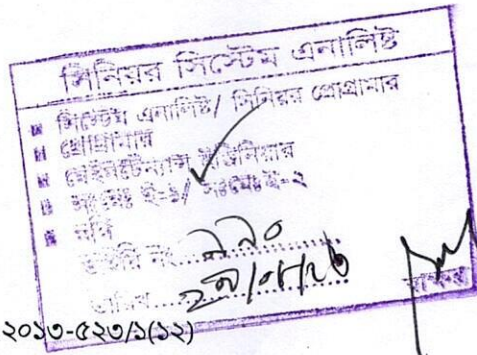 সিনিয়র সিস্টেম এনালিষ্ট
সিস্টেম এনালিষ্ট/ সিনিয়র প্রোগ্রামার
প্রোগ্রামার
মেইনটেন্যান্স ইঞ্জিনিয়ার
সঃমেঃ ই-১/ সঃমেঃই-২
নথি
ডায়েরি নং
তারিখ
স্বাক্ষর
২০১৩-৫২৩/১(১২)